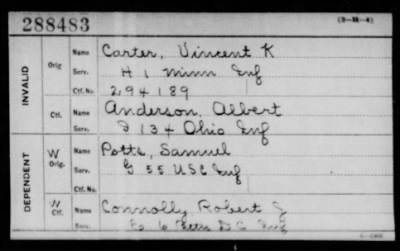 288483 (3-M-4)
INVALID
Orig Name Carter, Vincent K
Serv. H 1 Minn Inf
Ctf. No. 294189
Ctf. Name Anderson, Albert
Serv. I 134 Ohio Inf
DEPENDENT
W Orig. Name Potts, Samuel
Serv. G 55 USC Inf
Ctf. No.
W Ctf. Name Connolly Robert J
6 D.C. Inf